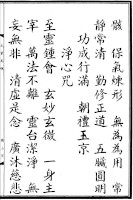 骸　保氣煉形　無為為用　常
靜常清　勤修正道　五臟圓明
功成行滿　朝禮玉京
淨心咒
至靈鍾會　玄妙玄微　一身主
宰　萬法不離　靈台潔淨　無
妄無非　清虛是念　廣沐慈悲